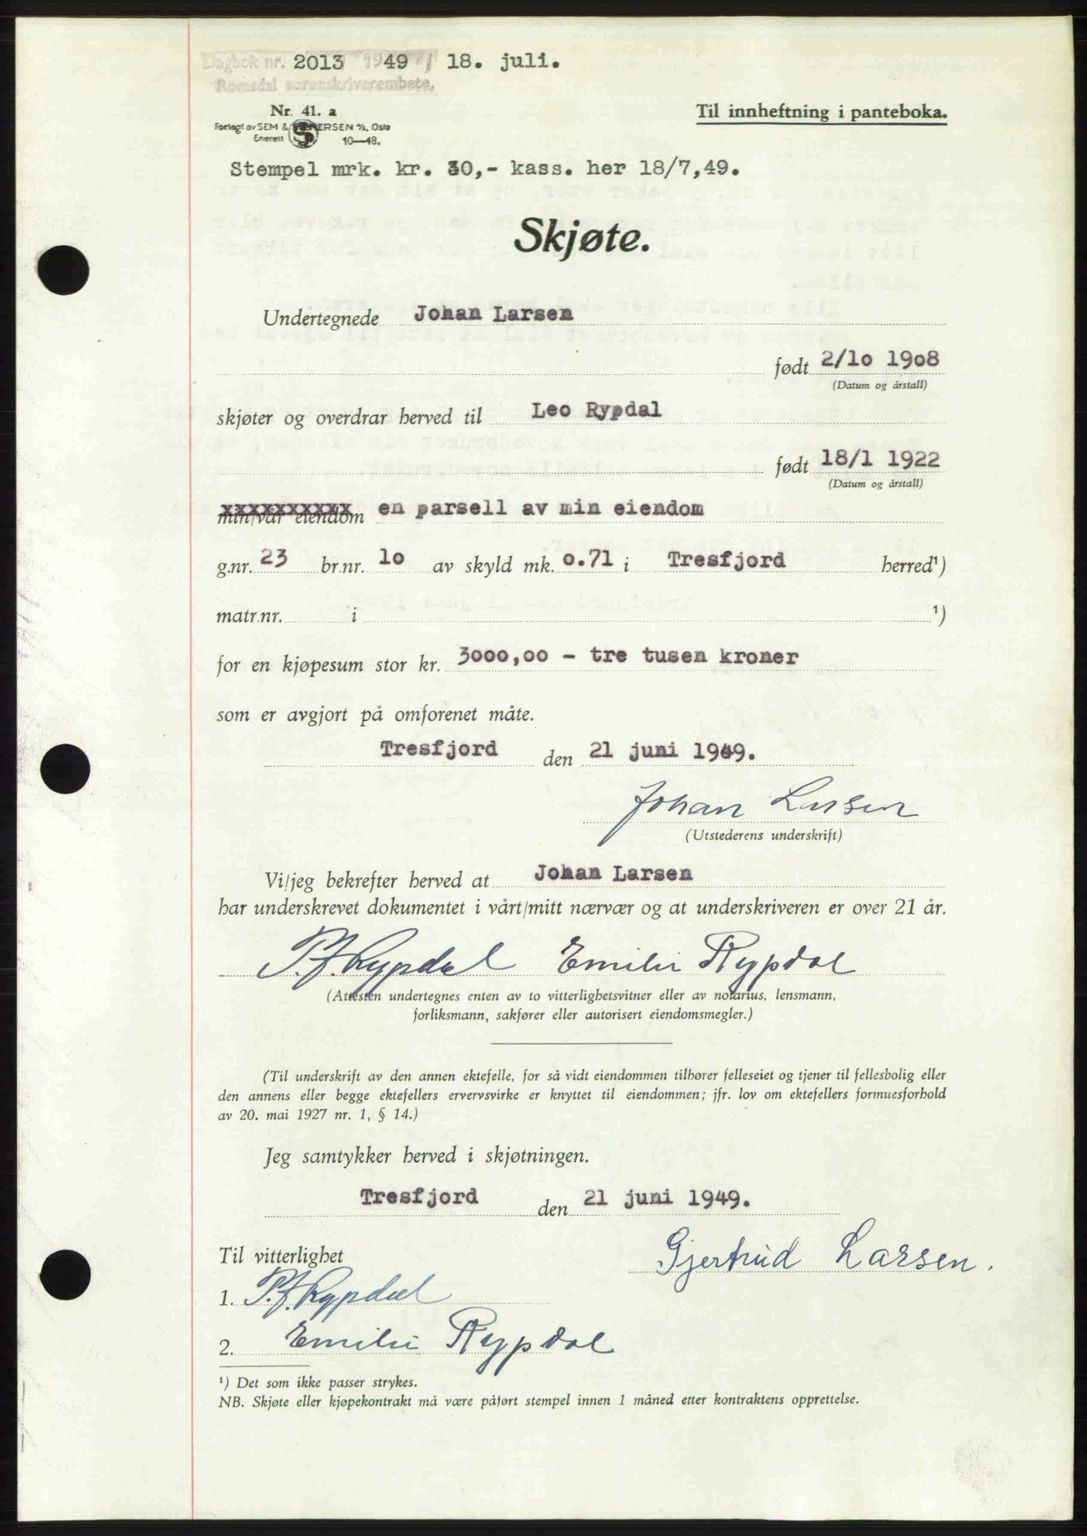 Dagbok nr. 2013 1949 / 18. juli.
Romsdal sorenskriverembete.
Nr. 41. a
Til innheftning i panteboka.
Forlagt av SEM & STENERSEN A/S, Oslo
Enerett 10—48.
Stempel mrk. kr. 30,- kass. her 18/7,49.
Skjøte.
Undertegnede Johan Larsen
født 2/10 1908
(Datum og årstall)
skjøter og overdrar herved til Leo Rypdal
født 18/1 1922
(Datum og årstall)
min/vår eiendom en parsell av min eiendom
g.nr. 23 br.nr. 10 av skyld mk. 0.71 i Tresfjord herred¹)
matr.nr. i ¹)
for en kjøpesum stor kr. 3000,00 - tre tusen kroner
som er avgjort på omforenet måte.
Tresfjord den 21 juni 1949.
Johan Larsen
(Utstederens underskrift)
Vi/jeg bekrefter herved at Johan Larsen
har underskrevet dokumentet i vårt/mitt nærvær og at underskriveren er over 21 år.
P.J. Rypdal Emilie Rypdal
(Attesten undertegnes enten av to vitterlighetsvitner eller av notarius, lensmann,
forliksmann, sakfører eller autorisert eiendomsmegler.)
(Til underskrift av den annen ektefelle, for så vidt eiendommen tilhører felleseiet og tjener til fellesbolig eller
den annens eller begge ektefellers ervervsvirke er knyttet til eiendommen; jfr. lov om ektefellers formuesforhold
av 20. mai 1927 nr. 1, § 14.)
Jeg samtykker herved i skjøtningen.
Tresfjord den 21 juni 1949.
Til vitterlighet
Gjertrud Larsen.
1. P.J. Rypdal
2. Emilie Rypdal
¹) Det som ikke passer strykes.
NB. Skjøte eller kjøpekontrakt må være påført stempel innen 1 måned etter kontraktens opprettelse.